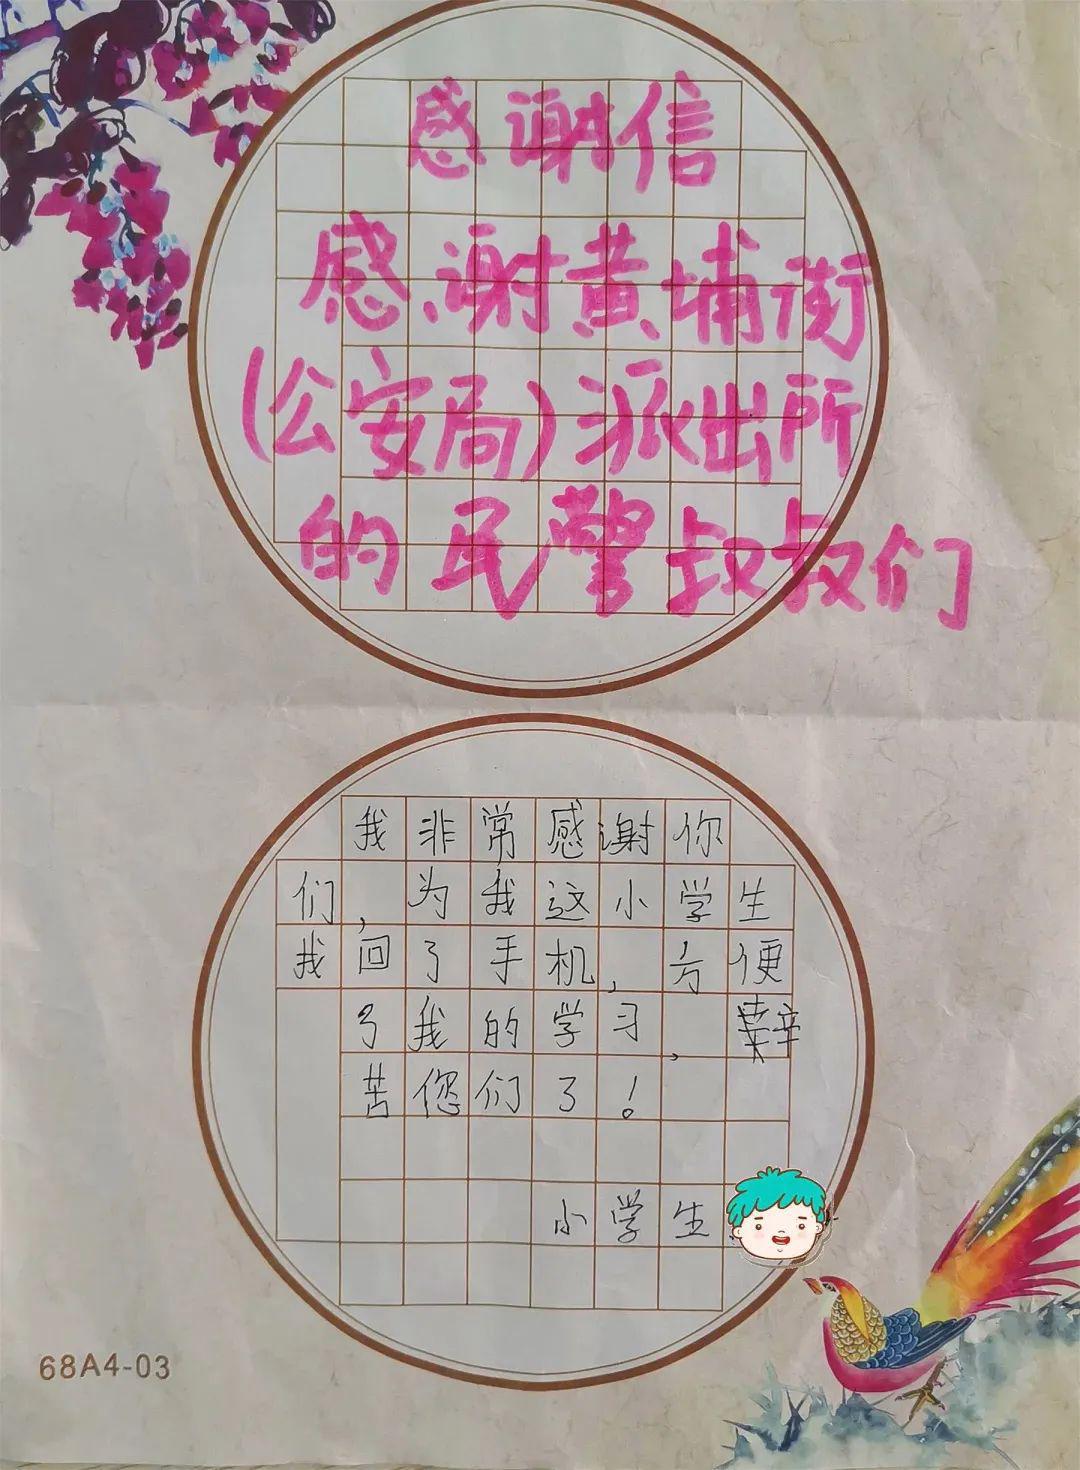 感谢信
感谢黄埔街
(公安局)派出所
的民警叔叔们
我非常感谢你
们,为我这小学生
我回了手机,方便
了我的学习,辛
苦您们了!
小学生
68A4-03